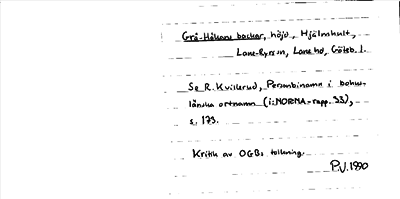 Grå-Håkans backar, höjd, Hjälmhult,
Lane-Ryrs sn, Lane hd, Götsb. l.
Se R. Kvillerud, Personbinamn i bohus-
länska ortnamn (i: NORNA-rapp. 23),
s. 173.
Kritik av OGBs tolkning.
P.V. 1990